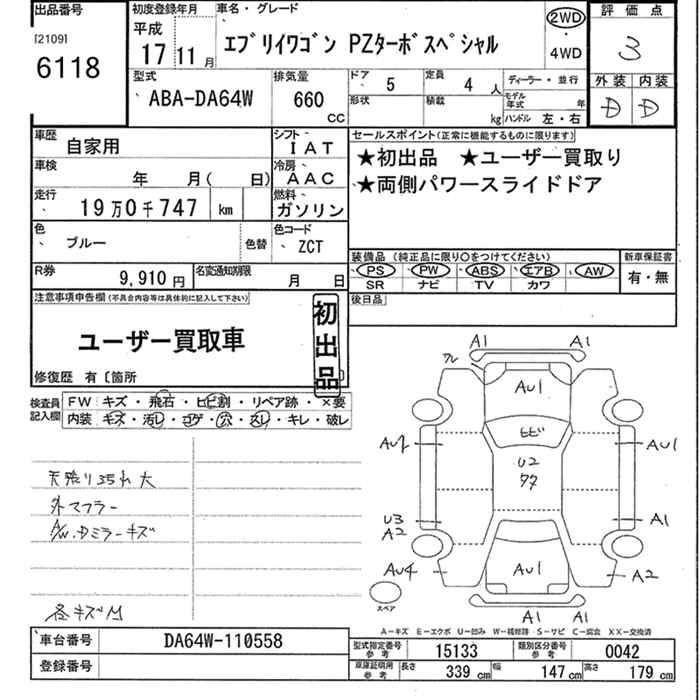 出品番号
[2109]
6118
初度登録年月
平成
17 11 月
車名・グレード
エブリイワゴン PZターボスペシャル
2WD
・
4WD
評価点
3
外装 内装
D D
型式
ABA-DA64W
排気量
660
CC
ドア
5
定員
4 人
形状
積載
kg
ディーラー・並行
モデル年式 年
ハンドル 左・右
車歴
自家用
シフト
IAT
車検
年 月( 日)
冷房
AAC
走行
19万0千747 km
燃料
ガソリン
色
ブルー
色替
色コード
ZCT
R券
9,910 円
名変通知期限
月 日
セールスポイント(正常に機能するものに限ります)
★初出品 ★ユーザー買取り
★両側パワースライドドア
装備品(純正品に限り○をつけてください)
PS PW ABS エアB AW
SR ナビ TV カワ
新車保証書
有・無
後日品
注意事項申告欄(不具合内容等は具体的に記入して下さい)
ユーザー買取車
初出品
修復歴 有〔箇所
検査員記入欄
FW キズ・飛石・ヒビ割・リペア跡・×要
内装 キズ・汚レ・コゲ・穴・スレ・キレ・破レ
外マフラー
A/W.Dミラーキズ
各キズM
A1 A1
AU1
ヒビ
U2
AU1
A1
U3
A2
AU4
AU1
A2
A1 A1
スペア
A-キズ E-エクボ U-凹み W-補修跡 S-サビ C-腐食 XX-交換済
車台番号
DA64W-110558
登録番号
型式指定番号
参考
15133
類別区分番号
参考
0042
車庫証明用
参考
長さ 339 cm
幅 147 cm
高さ 179 cm